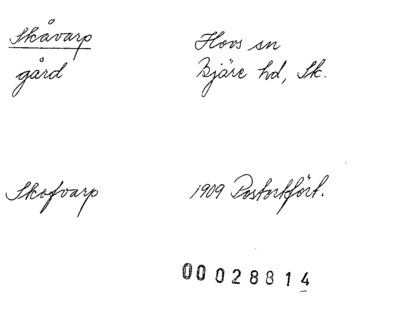 Skåvarp Hovs sn
gård Bjäre hd, Sk.
Skofvarp 1909 Postortsfört.
00028814